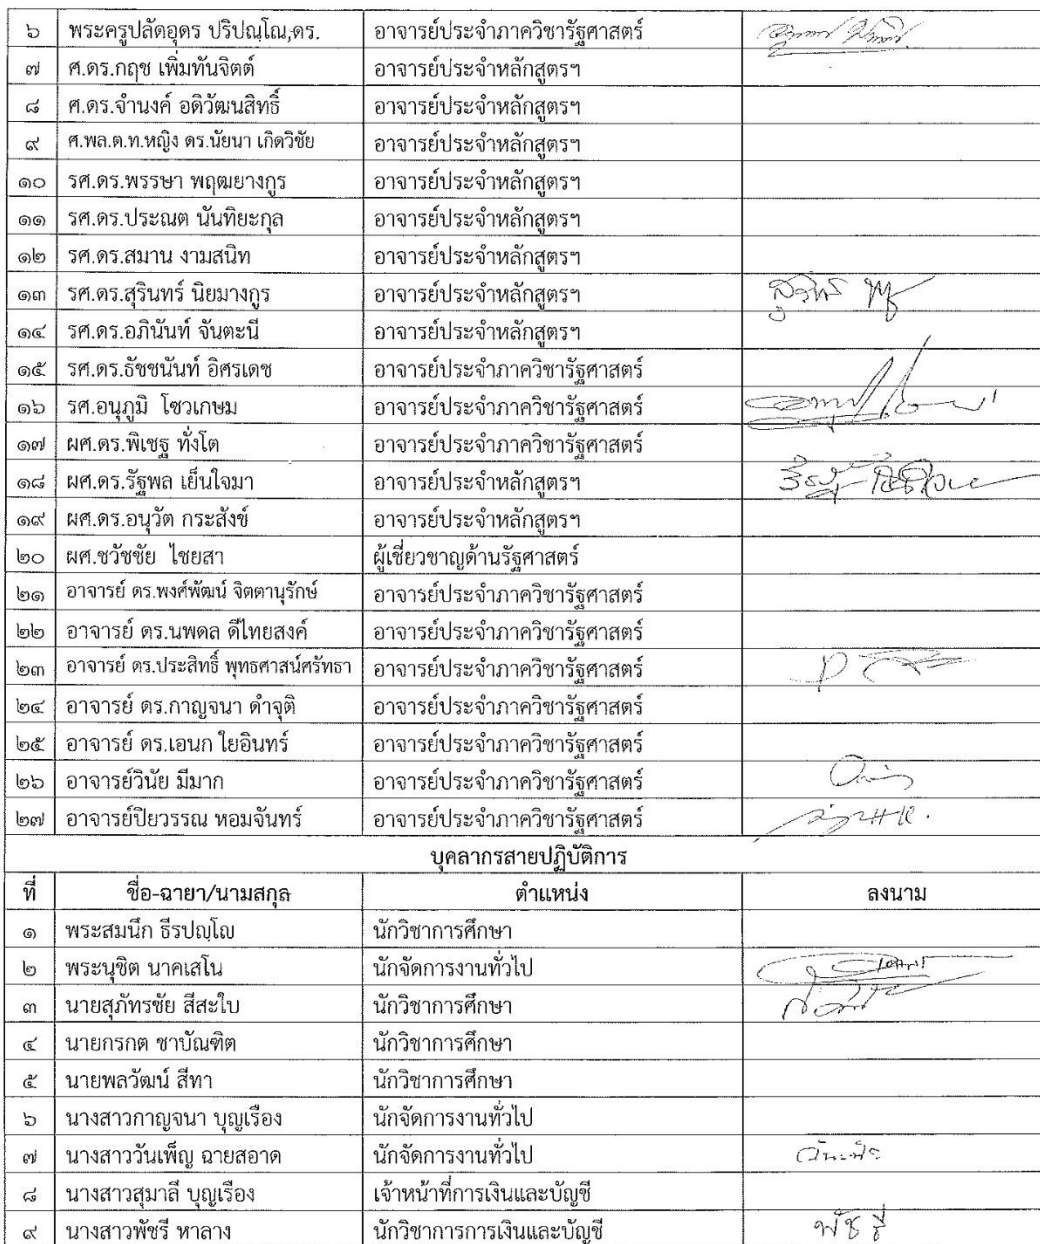 ๖ พระครูปลัดอุดร ปริปณฺโณ,ดร. อาจารย์ประจำภาควิชารัฐศาสตร์
๗ ศ.ดร.กฤช เพิ่มทันจิตต์ อาจารย์ประจำหลักสูตรฯ
๘ ศ.ดร.จำนงค์ อดิวัฒนสิทธิ์ อาจารย์ประจำหลักสูตรฯ
๙ ศ.พล.ต.ท.หญิง ดร.นัยนา เกิดวิชัย อาจารย์ประจำหลักสูตรฯ
๑๐ รศ.ดร.พรรษา พฤฒยางกูร อาจารย์ประจำหลักสูตรฯ
๑๑ รศ.ดร.ประณต นันทิยะกุล อาจารย์ประจำหลักสูตรฯ
๑๒ รศ.ดร.สมาน งามสนิท อาจารย์ประจำหลักสูตรฯ
๑๓ รศ.ดร.สุรินทร์ นิยมางกูร อาจารย์ประจำหลักสูตรฯ
๑๔ รศ.ดร.อภินันท์ จันตะนี อาจารย์ประจำหลักสูตรฯ
๑๕ รศ.ดร.ธัชชนันท์ อิศรเดช อาจารย์ประจำภาควิชารัฐศาสตร์
๑๖ รศ.อนุภูมิ โซวเกษม อาจารย์ประจำภาควิชารัฐศาสตร์
๑๗ ผศ.ดร.พิเชฐ ทั่งโต อาจารย์ประจำภาควิชารัฐศาสตร์
๑๘ ผศ.ดร.รัฐพล เย็นใจมา อาจารย์ประจำหลักสูตรฯ
๑๙ ผศ.ดร.อนุวัต กระสังข์ อาจารย์ประจำหลักสูตรฯ
๒๐ ผศ.ชวัชชัย ไชยสา ผู้เชี่ยวชาญด้านรัฐศาสตร์
๒๑ อาจารย์ ดร.พงศ์พัฒน์ จิตตานุรักษ์ อาจารย์ประจำภาควิชารัฐศาสตร์
๒๒ อาจารย์ ดร.นพดล ดีไทยสงค์ อาจารย์ประจำภาควิชารัฐศาสตร์
๒๓ อาจารย์ ดร.ประสิทธิ์ พุทธศาสน์ศรัทธา อาจารย์ประจำภาควิชารัฐศาสตร์
๒๔ อาจารย์ ดร.กาญจนา ดำจุติ อาจารย์ประจำภาควิชารัฐศาสตร์
๒๕ อาจารย์ ดร.เอนก ใยอินทร์ อาจารย์ประจำภาควิชารัฐศาสตร์
๒๖ อาจารย์วินัย มีมาก อาจารย์ประจำภาควิชารัฐศาสตร์
๒๗ อาจารย์ปิยวรรณ หอมจันทร์ อาจารย์ประจำภาควิชารัฐศาสตร์
บุคลากรสายปฏิบัติการ
ที่ ชื่อ-ฉายา/นามสกุล ตำแหน่ง ลงนาม
๑ พระสมนึก ธีรปญฺโญ นักวิชาการศึกษา
๒ พระนุชิต นาคเสโน นักจัดการงานทั่วไป
๓ นายสุภัทรชัย สีสะใบ นักวิชาการศึกษา
๔ นายกรกต ชาบัณฑิต นักวิชาการศึกษา
๕ นายพลวัฒน์ สีทา นักวิชาการศึกษา
๖ นางสาวกาญจนา บุญเรือง นักจัดการงานทั่วไป
๗ นางสาววันเพ็ญ ฉายสอาด นักจัดการงานทั่วไป
๘ นางสาวสุมาลี บุญเรือง เจ้าหน้าที่การเงินและบัญชี
๙ นางสาวพัชรี หาลาง นักวิชาการการเงินและบัญชี พัชรี